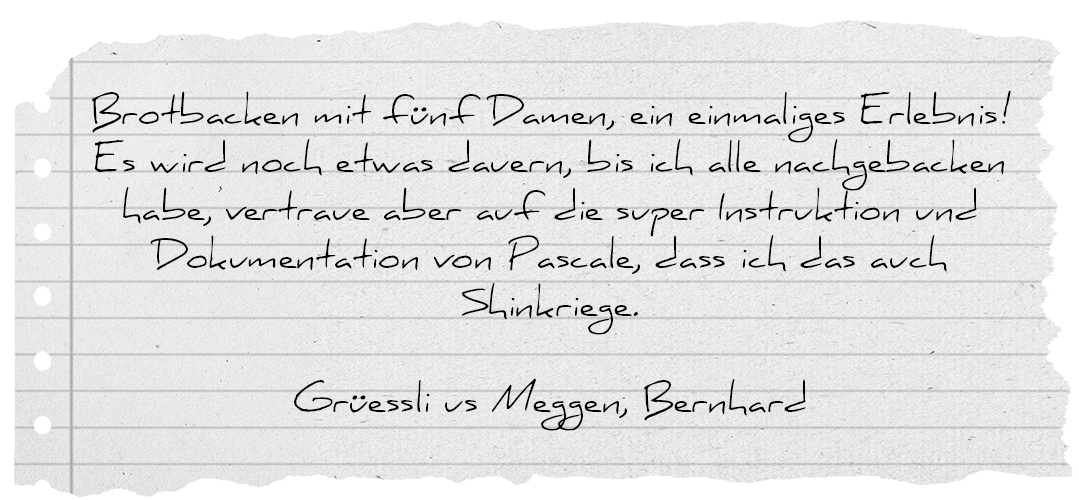 Brotbacken mit fünf Damen, ein einmaliges Erlebnis!
Es wird noch etwas dauern, bis ich alle nachgebacken
habe, vertraue aber auf die super Instruktion und
Dokumentation von Pascale, dass ich das auch
Shinkriege.
Grüessli us Meggen, Bernhard